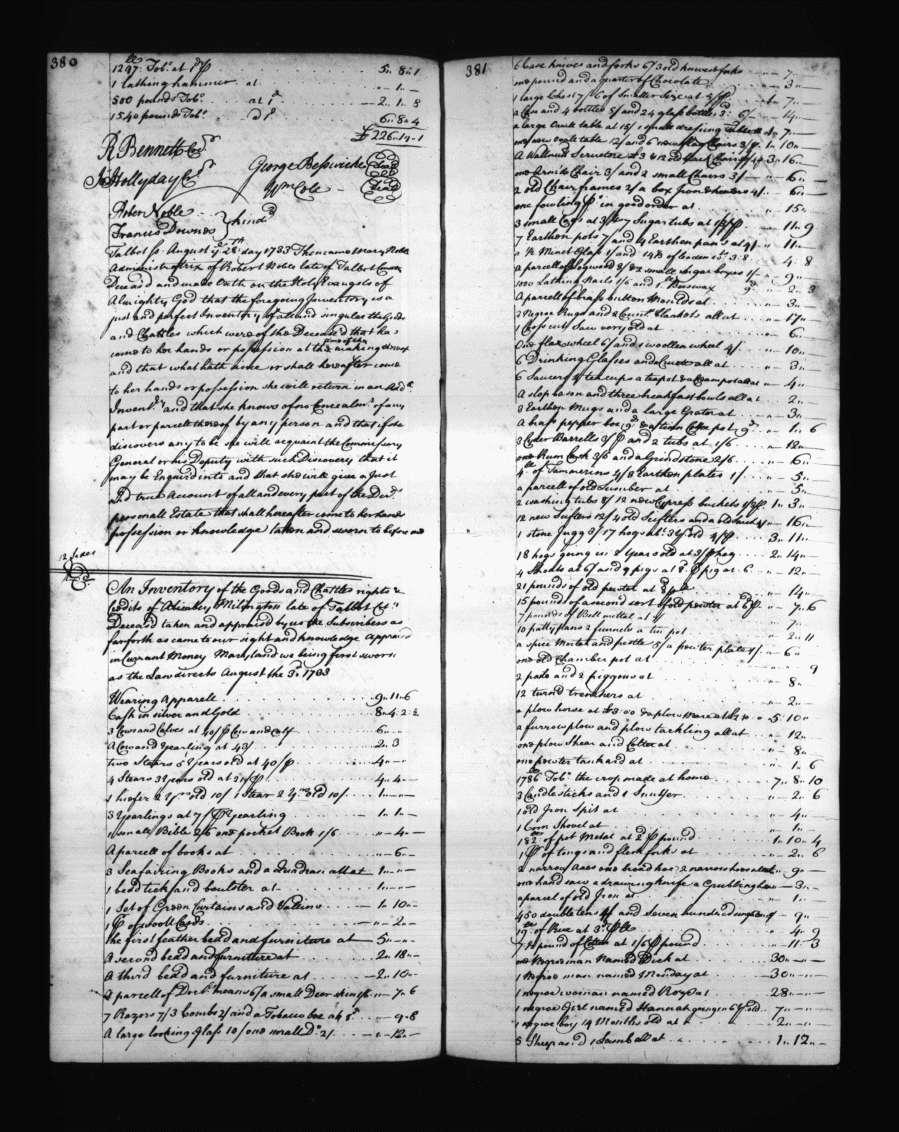 380
1297 Tobo. at 1d p 5 " 8 " 1
1 lathing hammer at " 1 "
500 pounds Tobo. at 1d 2 " 1 " 8
1540 pounds Tobo. Do 6 " 8 " 4
£226 " 19 " 1
R Bennett Cr.
George Beswicke
Js Hollyday Cr.
Wm Cole
Robert Noble
Francis Downes } kind
Talbot ss. August ye 28th day 1733 Then came Mary Noble
Administratrix of Robert Noble late of Talbot County
Deceasd and made Oath on the Holy Evangels of
Almighty God that the foregoing Inventory is a
just and perfect Inventory of all and singular the Goods
and Chattles which were of the Deceased that has
come to her hands or possession at the time of the making thereof
and that what hath since or shall hereafter come
to her hands or possession she will return in an Addl
Inventory and that she knows of no Concealmt. of any
part or parcell thereof by any person and that if she
discovers any to be she will acquaint the Commissary
General or his Deputy with such Discovery that it
may be Enquired into and that she will give a Just
and true Account of all and every part of the Decd.
personall Estate that shall hereafter come to her hands
possession or knowledge taken and sworn to before me
12 sides
An Inventory of the Goods and Chattles rights &
Credits of late of Talbot Coty.
Deceased taken and appraised by us the Subscribers as
farforth as came to our sight and knowledge Appraisd
in Currant Money Maryland we being first sworn
as the Law directs August the 3d. 1733
Wearing Apparell 9 " 11 " 6
Cash in silver and Gold 8 " 4 " 2 ½
3 Cows and Calves at 40/ p Cow and calf 6 " "
A Cow and Yearling at 43/ 2 " 3
two Stears 5 Years old at 40/ p 4 " "
4 Stears 3 Years old at 21/ p 4 " 4 "
1 heofer 2 yrs old 10/ 1 Stear 2 yrs old 10/ 1 " "
3 Yearlings at 7/ p Yearling 1 " 1 "
1 small Bible 2/6 one pocket Book 1/6 " 4 "
A parcell of books at " 6 "
3 Seafairing Books and a Quadrant all at 1 " "
1 bed tick and boulster at 1 " "
1 Set of Green Curtains and Vallins 1 " 10 "
1 pr of wooll Cards " 2 "
the first feather bedd and furniture at 5 " "
A second bedd and furniture at 2 " 18 "
A third bedd and furniture at 2 " 10 "
A parcell of Doctrs means 6/ a small Deer skin " 7 " 6
7 Razors 7/3 Combs 2/ and a Tobacco box " 9 " 8
A large looking glass 10/ one small Do 2/ " 12 "
381
6 case knives and forks 6/ 3 old knives & forks " 7 "
one pound and a quarter of Chocolate " 3 "
1 large Chest 7/6 of Smaller Size at " 7 "
a Case and 4 bottles 8/ and 24 glass bottles 6/ " 14 "
a large table at 15/ 1 small dressing Table " 7 "
one ovale table 12/ and 6 Chairs 1 " 10 "
A Wallnut Scrutore 3 & 12 Black Chairs 3 " 16 "
one Arm'd Chair 3/ and 2 small Chairs 3/ " 6 "
2 old Chair frames 2/ a box Iron & heaters 4/ " 6 "
one fowling p in good order at " 15 "
3 small Cags at 3/ 7 Sugar tubs at 11 " 9
7 Earthen pots 7/ and 4 Earthen pans at 4/ " 11 "
½ Minet Glass 1/ and 14 lb of leaden 4 " 8
a parcell of logwood 8/ 2 small Sugar boxes 1/ " 9 "
1000 Lathing Nails 1/6 and 1 lb Beeswax 2 " 3
A parcell of brass button Moulds at " 3 "
2 Negroe Rugs and 2 Count. blankets all at " 17 "
1 Cross cut Saw very old at " 6 "
One flax wheel 6/ and 1 woollen wheel 4/ " 10 "
6 Drinking Glasses and a Cruet all at " 3 "
6 Saucers 4 tea cups a teapot & a Cream pot all at " 4 "
A slop bason and three breakfast bowls all at 2 "
3 Earthen Mugs and a large Grater at " 3 "
A brass pepper box 9d & a Coffe pot 9d 1 " 6
3 Cyder Barrells 3/ p and 2 tubs at 1/6 " 12 "
one Rum Cask 3/6 and a Grindstone 2/6 " 6 "
4 lb of Tammerins 2/ 8 Earthen plates 1/ " 3 "
a parcell of old Lumber at " 3 "
2 washing tubs 8/ 12 new Cypress buckets 1 " 3 "
12 new Sifters 12/ 4 old Sifters and a old 4/ " 16 "
1 stone Jugg 3/ 17 hogs 3 Y. old 4/ p 3 " 11 "
18 hogs going in 2 Years old at 3/ p hog 2 " 14 "
4 Shoats at 6/ and 9 pigs at 8d p pig at 6 " 12 "
21 pounds of old pewter at 8d p lb " 14 "
15 pounds of a second sort of old pewter at 6d p 7 " 6
7 pounds of Bell mettal at " 7 "
10 patty pans 2 funnels a tin pot 2 " 11
a spice Mortar and pestle 5/ a pewter plate 1/ " 6 "
one old Chamber pot at 9
2 pails and 2 piggons at " 8 "
12 turnd trenchers at " 2 "
a plow horse at £3:00 & a plow Mare at £2:10 5 " 10 "
a furrow plow and plow tackling all at " 12 "
one plow Shear and Colter at " 8 "
one pewter tankard at 1 " 6
1786 lb Tobo. the crop made at home 7 " 8 " 10
3 Candlesticks and 1 Snuffer " 2 " 6
1 old Iron Spit at " 4 "
1 Corn Shovel at " 1 "
182 lb of pot Metal at 2d p pound 1 " 10 " 4
1 pr of tongs and flesh forks at " 2 " 6
2 narrow axes one broad hoe 2 narrow hoes all at " 9 "
one hand saw a drawing knife a Grubbing hoe " 3 "
a parcel of old Iron at " 1 "
450 double tens and Seven hundred " 9 "
19 lb of Rice at 3d p lb " 4 " 9
7½ pound of Cotton at 1/6 p pound " 11 " 3
one Negroe man Named Dick at 30 " "
1 Negroe man named Munday at 30 " "
1 negroe woman named Rose at 28 " "
1 negroe Girl named Hannah going in 6 Yrs. old 7 " "
1 negroe boy 14 Months old at 2 " "
5 Sheep and 1 Lamb all at 1 " 12 "